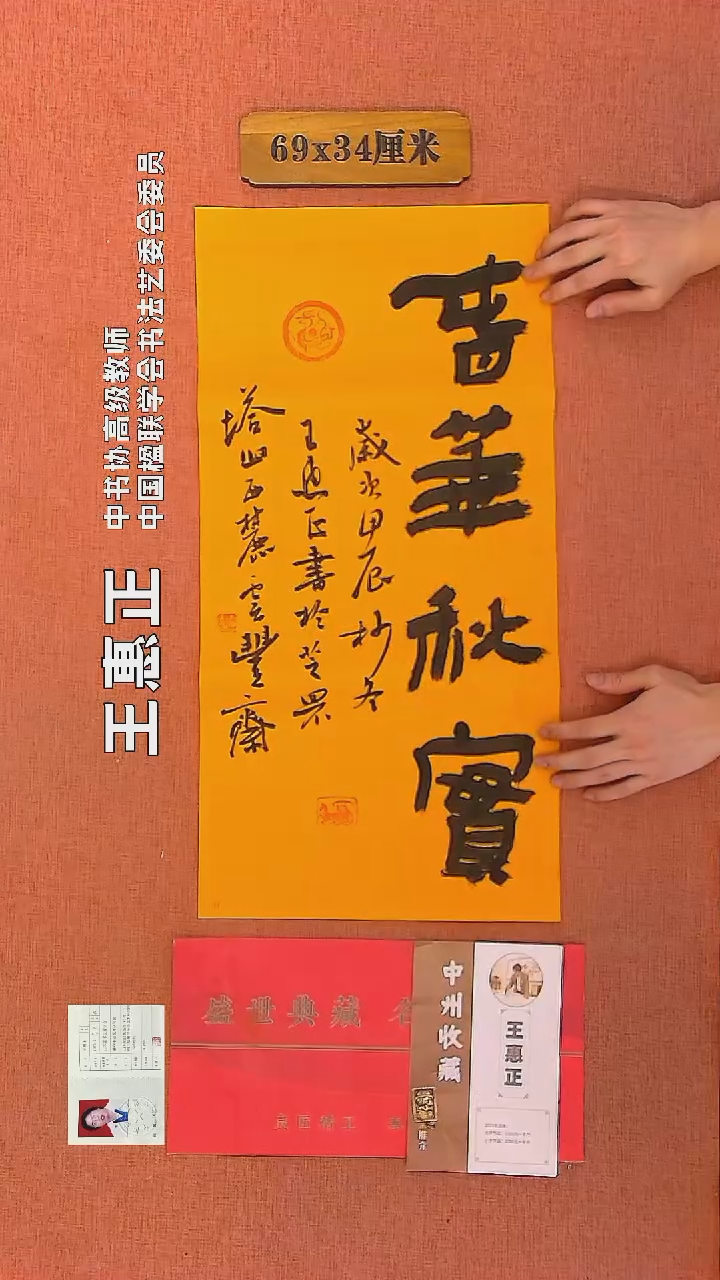 69x34厘米
春華秋實
歲次甲辰杪冬
王惠正書於芝罘
塔山西麓雲豐齋
中书协高级教师
中国楹联学会书法艺委会委员
王惠正
盛世典藏
中州收藏
王惠正